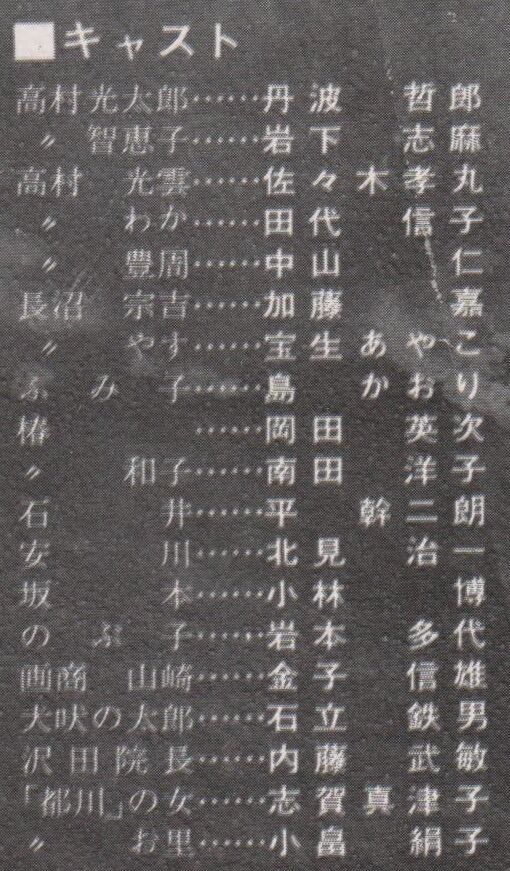 ■キャスト
高村光太郎……丹波哲郎
〃智恵子……岩下志麻
高村光雲……佐々木孝丸
〃わか……田代信子
〃豊周……中山仁
長沼宗吉……加藤嘉
〃やす……宝生あやこ
ふみ子……島かおり
椿……岡田英次
〃和子……南田洋子
石井……平幹二朗
安川……北見治一
坂本……小林博
のぶ子……岩本多代
画商山崎……金子信雄
犬吠の太郎……石立鉄男
沢田院長……内藤武敏
「都川」の女……志賀真津子
〃お里……小畠絹子